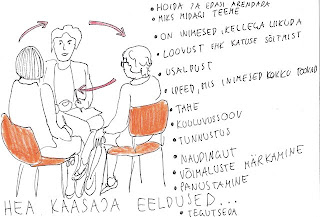 HOIDA JA EDASI ARENDADA
MIKS MIDAGI TEEME
ON INIMESED, KELLEGA LIIKUDA
LOOVUST EHK KATUSE SÕITMIST
USALDUST
IDEED, MIS INIMESED KOKKU TOOVAD
TAHE
KUULUVUSSOOV
TUNNUSTUS
NAUDINGUT
VÕIMALUSTE MÄRKAMINE
PANUSTAMINE
HEA KAASAJA EELDUSED...
TEGUTSEDA